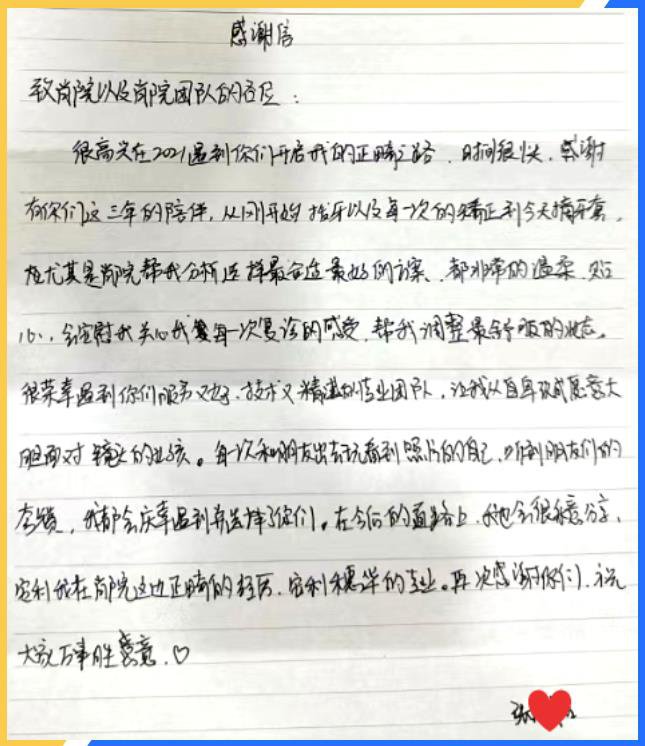 感谢信
致肖院以及肖院团队的各位：
很高兴在2021遇到你们开启我的正畸之路，时间很快，感谢
有你们这三年的陪伴，从刚开始拔牙以及每一次的矫正到今天摘牙套，
尤其是肖院帮我分析选择最合适最好的方案、都非常的温柔，贴
心，会安慰我关心我每一次复诊的感受，帮我调整最舒服的状态。
很荣幸遇到你们服务又好、技术又精进的专业团队，让我从自卑改成愿意大
胆面对镜头的女孩。每一次和朋友出去玩看到照片的自己，听到朋友们的
夸赞，我都会庆幸遇到并选择了你们。在今后的道路上，我也会很乐意分享、
安利我在肖院这边正畸的经历，安利穗华的专业。再次感谢你们，祝
大家万事胜意意，♡
张